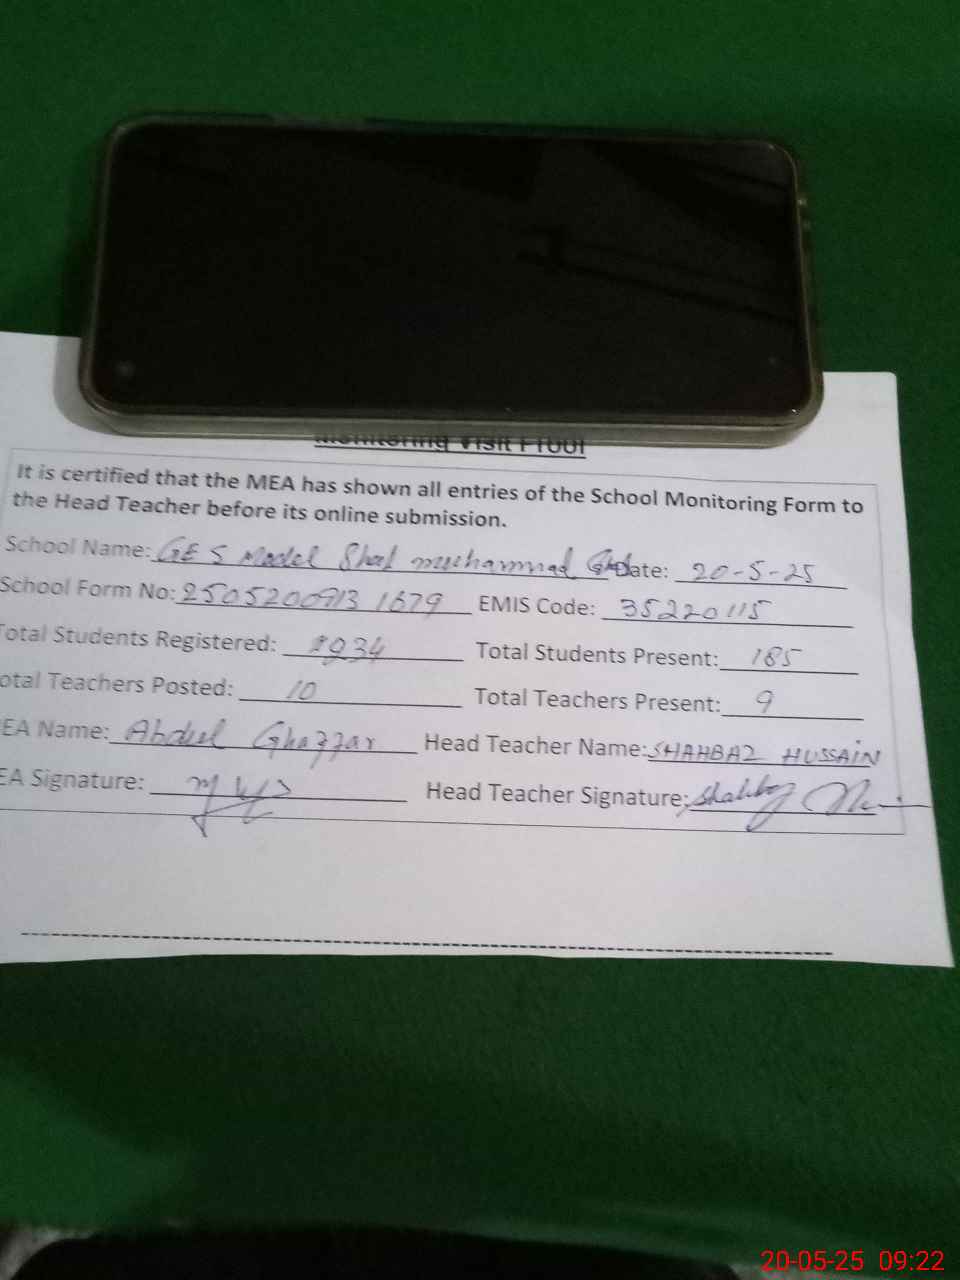 Monitoring Visit Proof
It is certified that the MEA has shown all entries of the School Monitoring Form to
the Head Teacher before its online submission.
School Name: GES Model Shad muhammad Date: 20-5-25
School Form No: 25052009131679 EMIS Code: 35220115
Total Students Registered: 234 Total Students Present: 185
otal Teachers Posted: 10 Total Teachers Present: 9
EA Name: Abdul Ghazzar Head Teacher Name: SHAHBAZ HUSSAIN
EA Signature: Head Teacher Signature: Shahbaz
20-05-25 09:22